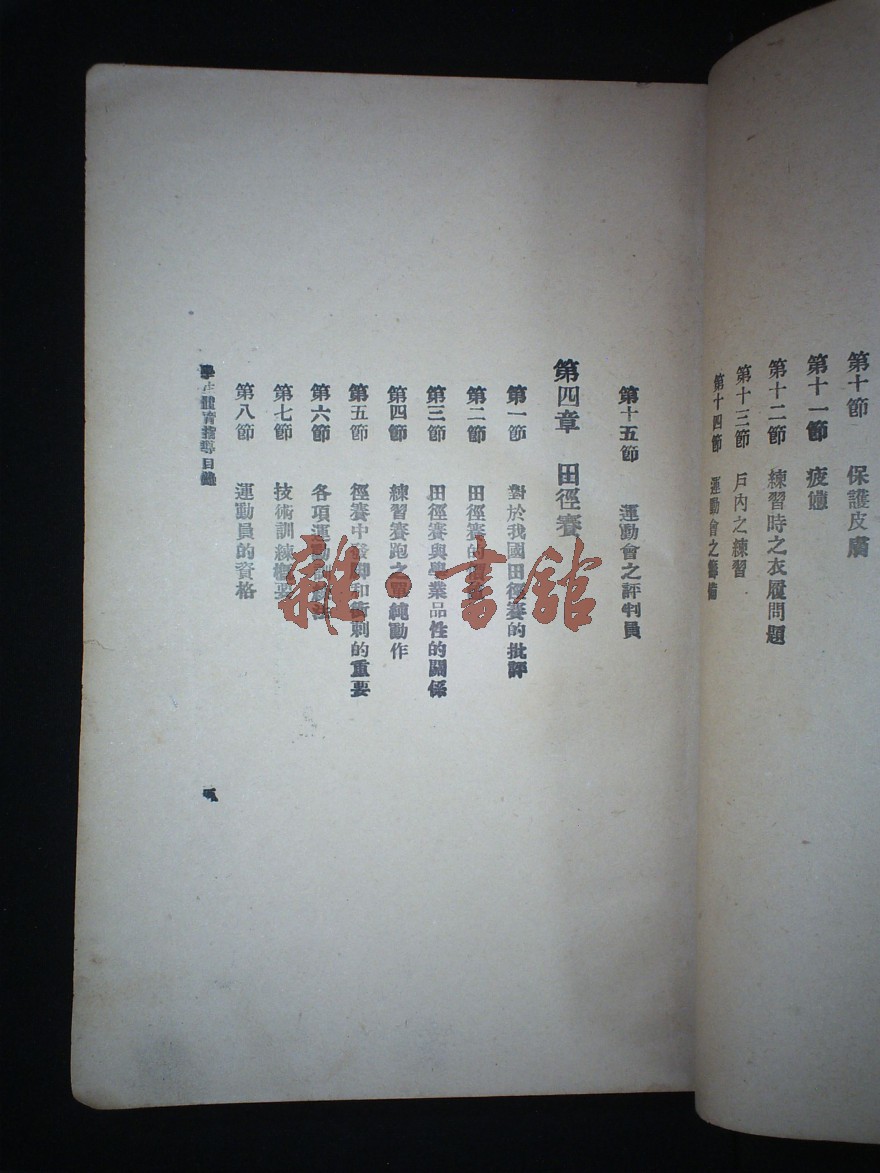 第十節 保護皮膚
第十一節 疲憊
第十二節 練習時之衣履問題
第十三節 戶內之練習
第十四節 運動會之籌備
第十五節 運動會之評判員
第四章 田徑賽
第一節 對於我國田徑賽的批評
第二節 田徑賽的
第三節 田徑賽與學業品性的關係
第四節 練習賽跑之單純動作
第五節 徑賽中發腳和衝刺的重要
第六節 各項運動
第七節 技術訓練概要
第八節 運動員的資格
學生體育指導目錄
五
雜·書館